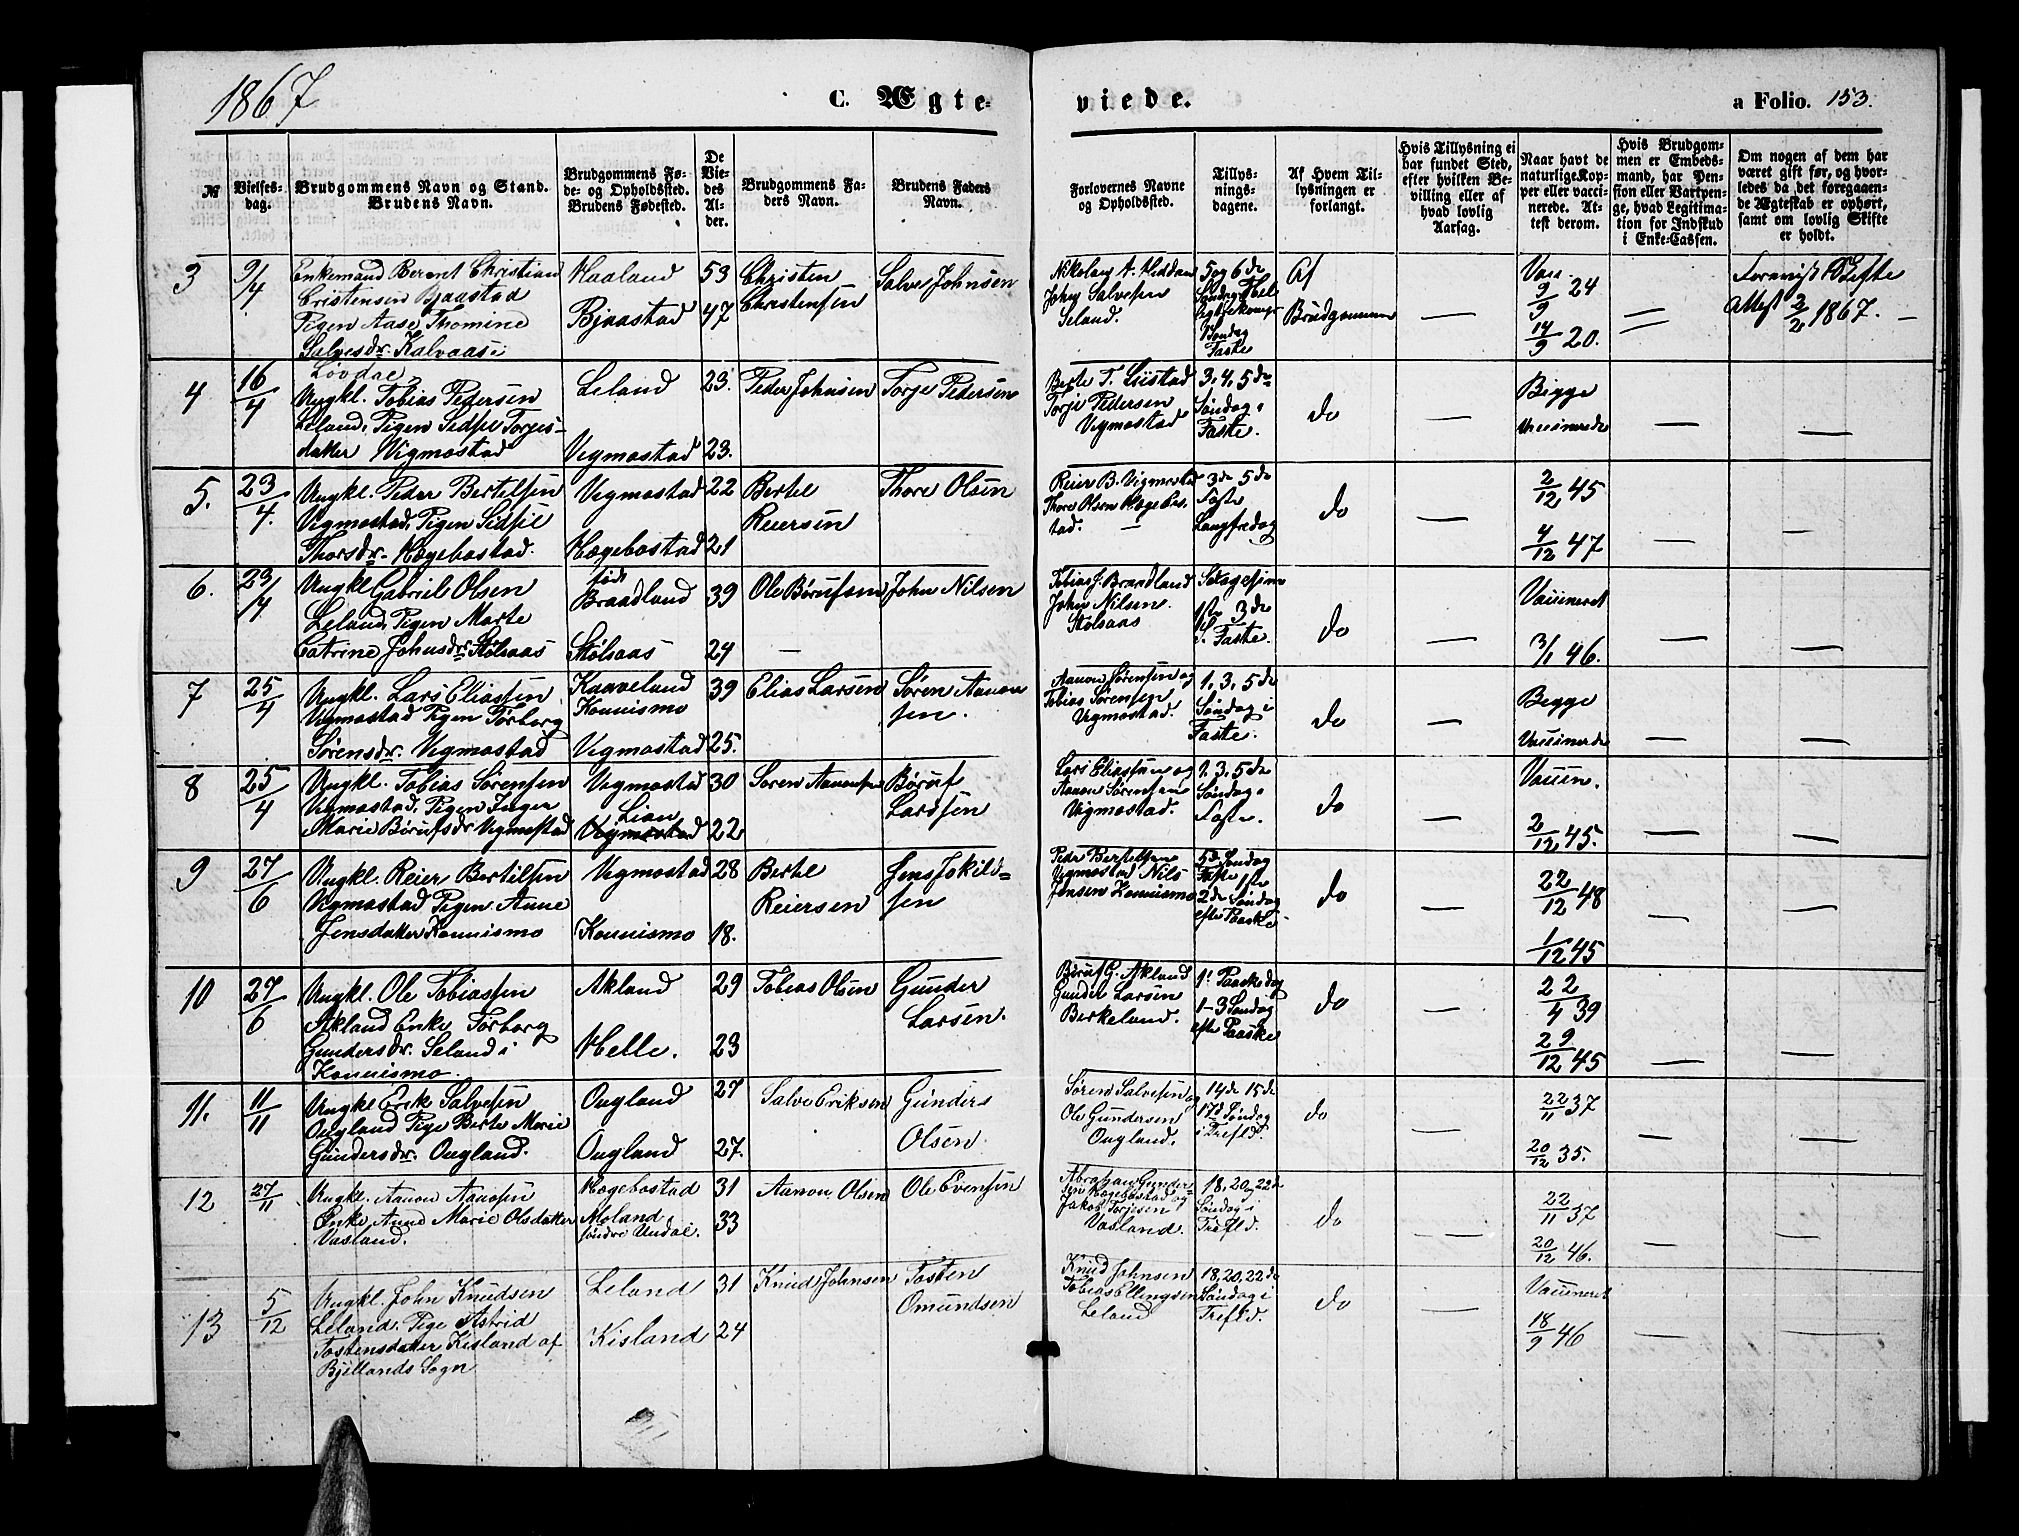 1867
C. Ægte-
viede.
a Folio. 153.
№
Vielses-
dag.
Brudgommens Navn og Stand.
Brudens Navn.
Brudgommens Fø-
de- og Opholdssted.
Brudens Fødested.
De
Vie-
des
Al-
der.
Brudgommens Fa-
ders Navn.
Brudens Faders
Navn.
Forlovernes Navne
og Opholdssted.
Tillys-
nings-
dagene.
Af Hvem Til-
lysningen er
forlangt.
Hvis Tillysning ei
har fundet Sted,
efter hvilken Be-
villing eller af
hvad lovlig
Aarsag.
Naar havt de
naturlige Kop-
per eller vacci-
nerede. At-
test derom.
Hvis Brudgom-
men er Embeds-
mand, har Pen-
sion eller Vartpen-
ge, hvad Legitima-
tion for Indskud
i Enke-Cassen.
Om nogen af dem har
været gift før, og hvor-
ledes da det foregaaen-
de Ægteskab er ophørt,
samt om lovlig Skifte
er holdt.
3
9/4
Enkemand Berent Christian
Cristensen Bjaastad
Pigen Aase Thomine
Salvesdr. Kalvaasi
Løvdal
Haaland
Bjaastad
53
47
Christen
Christensen
Salve Johnsen
John Salvesen
Seland.
5 og 6 de
Søndag
Faste
Af
Brudgommen
Vacc.
9/9 24
14/9 20.
Attest 2/2 1867.
4
16/4
Ungkl. Tobias Pedersen
Leland, Pigen Sidsel Torjes-
datter Vigmostad
Leland
Vegmostad
23.
23.
Peder Johnsen
Torje Pedersen
Torje Pedersen
Vegmostad
3, 4, 5 de
Søndag i
Faste.
do
Begge
Vaccinerede
5.
23/4.
Ungkl. Peder Bertelsen
Vegmostad, Pigen Sidsel
Thorsdr. Hægebostad.
Vegmostad
Hægebostad
22
21
Bertel
Reiersen
Thore Olsen
Reier B. Vigmostad
Thore Olsen Hægebos-
tad.
3 de 5 de
Faste
Langfredag
do
2/12 45
4/12 47
6.
23/4
Ungkl. Gabriel Olsen
Leland, Pigen Marte
Catrine Johnsdr. Stølsaas
født
Braadland
Stølsaas
39
24
Ole Børufsen
John Nilsen
Tobias J. Braadland
John Nilsen
Stølsaas
1ste 3 de
S. Faste.
do
Vaccineret
3/1 46.
7
25/4
Ungkl. Lars Eliassen
Vegmostad Pigen Tørborg
Sørensdr. Vegmostad
Kaaveland
Konnismo
Vegmostad
39
25.
Elias Larsen
Søren Aanon-
sen.
Aanon Sørensen og
Tobias Sørensen
Vegmostad.
1, 3, 5 de
Søndag i
Faste.
do
Begge
Vaccinerede
8
25/4
Ungkl. Tobias Sørensen
Vegmostad, Pigen Inger
Marie Børufsdr. Vegmostad
Vegmostad
Lian
Vegmostad
30
22
Søren Aanonsen
Børuf
Larssen
Lars Eliassen og
Aanon Sørensen
Vegmostad.
1, 3, 5 de
Søndag i
Faste.
do
Vaccin.
2/12 45.
9
27/6
Ungkl. Reier Bertelsen
Vegmostad Pigen Anne
Jensdatter Konnismo
Vegmostad
Konnismo
28
18.
Bertel
Reiersen
Jens Jokild-
sen
Peder Bertelsen
Vegmostad Nils
Jensen Konnismo
5 de Søndag
Faste 1ste
2 de Søndag
efter Paaske
do
22/12 48
1/12 45
10
27/6
Ungkl. Ole Tobiassen
Akland Enke Tørborg
Gundersdr. Seland i
Konnismo.
Akland
Helle.
29
23
Tobias Olsen
Gunder
Larsen.
Børuf G. Akland
Gunder Larsen
Birkeland.
1. Paaskedag
1-3 Søndag
efter Paaske
do
22/4 39
29/12 45
11.
11/11
Ungkl Erik Salvesen
Ougland Pige Berte Marie
Gundersdr. Ougland.
Ougland
Ougland
27
27.
Salve Eriksen
Gunders
Olsen.
Søren Salvesen og
Ole Gundersen
Ougland.
14 de 15 de
17 d Søndag
i Trefld.
do
22/11 37
20/12 35.
12
27/11
Ungkl. Aanon Aanosen
Enke Anne Marie Olsdatter
Vasland.
Hægebostad
Moland
søndre Undal.
31
33
Aanon Olsen
Ole Evensen
Abraham Gunder-
sen Hægebostad og
Jakob Torjesen
Vasland.
18, 20, 22 de
Søndag i
Trefld.
do
22/11 37
20/12 46.
13
5/12
Ungkl. John Knudsen
Leland, Pige Astrid
Tostensdatter Kisland af
Bjellands Sogn
Leland
Kisland
31
24
Knud Johnsen
Tosten
Omundsen
Knud Johnsen
Tobias Ellingsen
Leland
18, 20, 22 de
Søndag i
Trefld.
do
Vaccineret
18/9 46